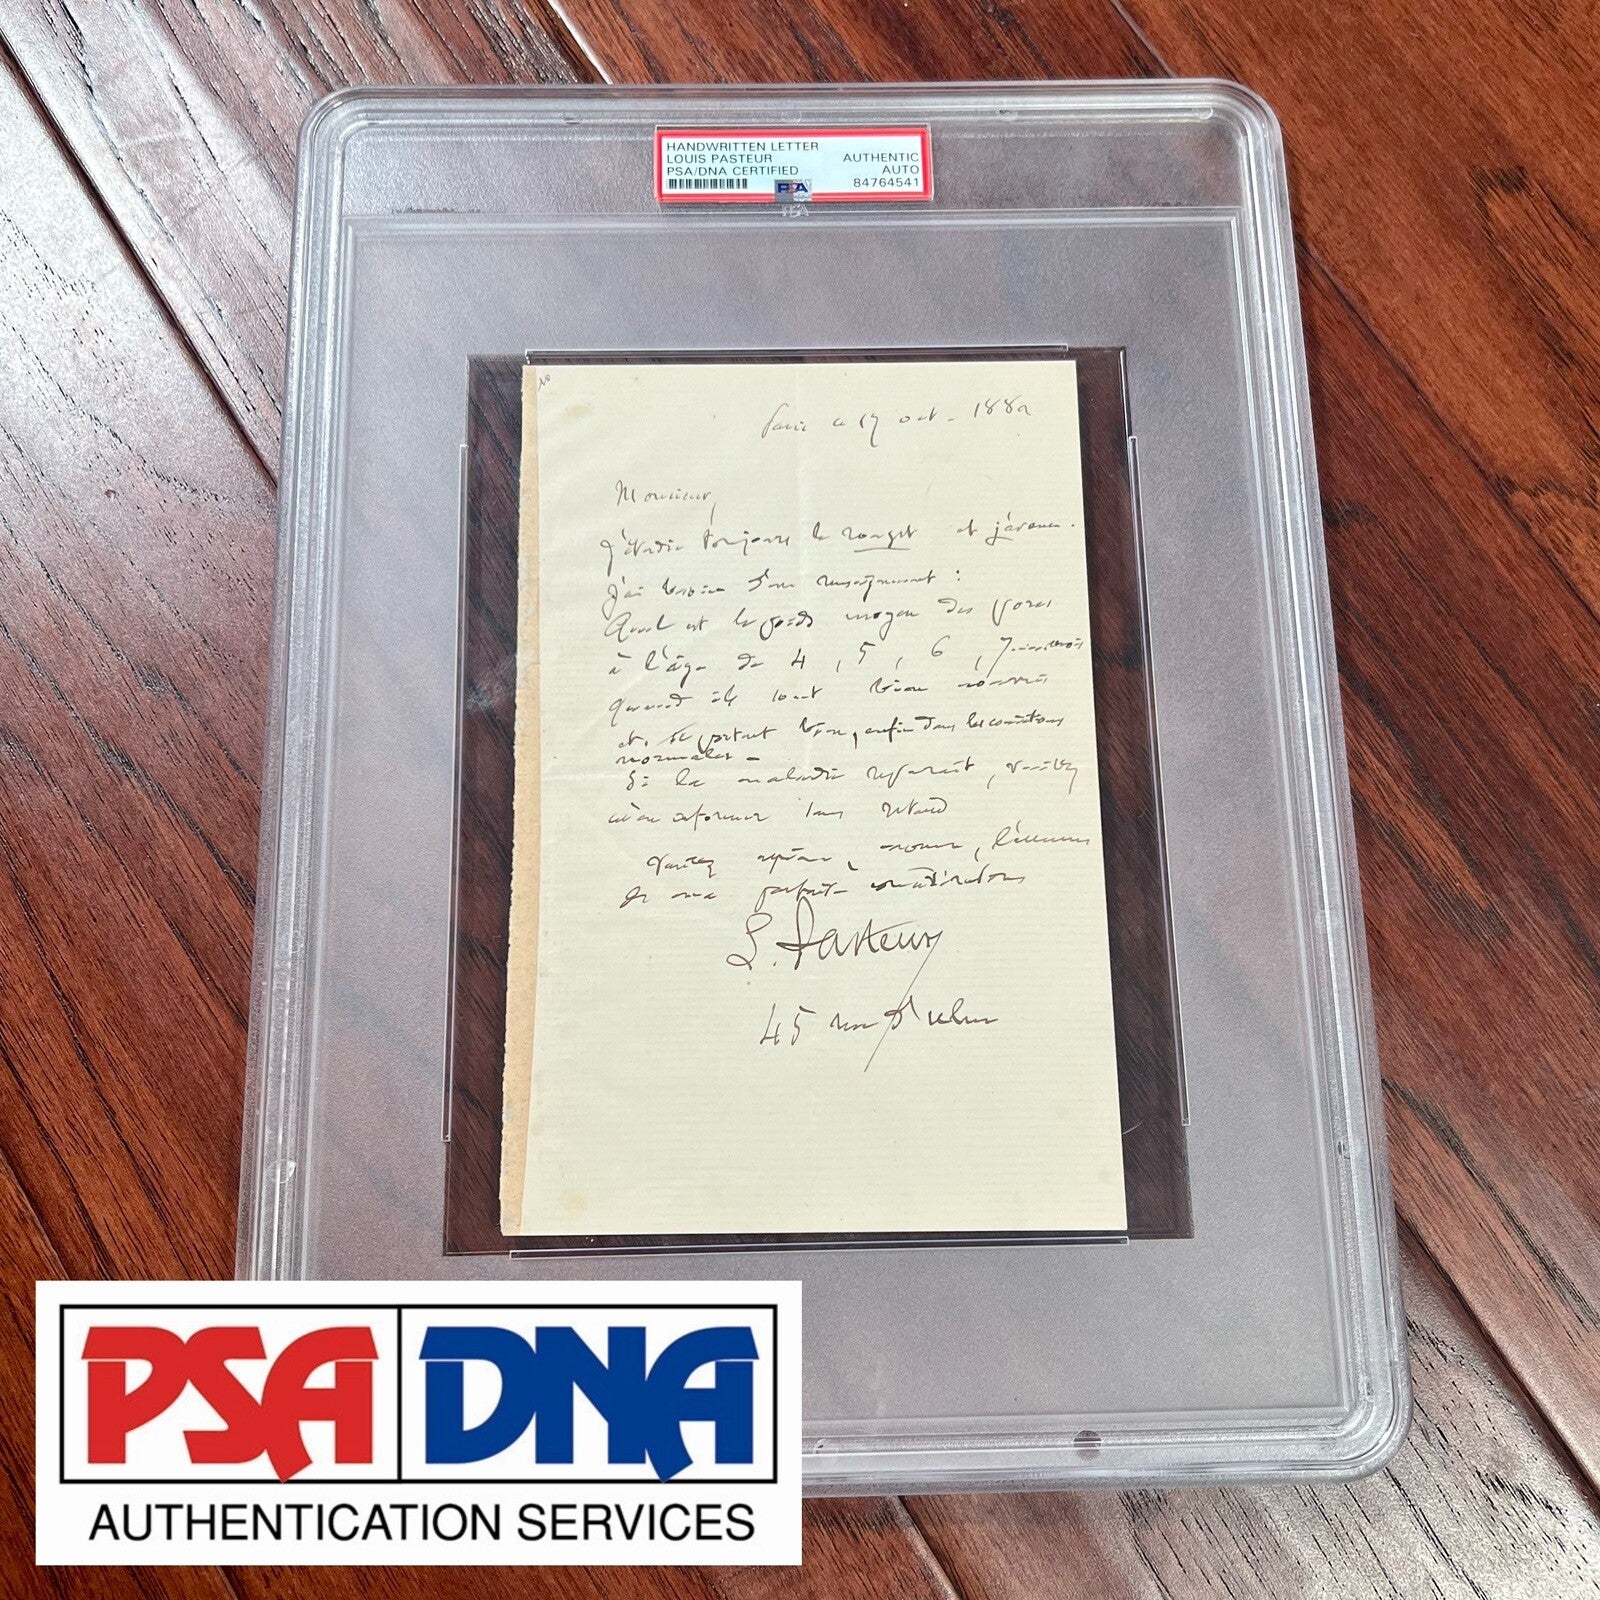 HANDWRITTEN LETTER
LOUIS PASTEUR
PSA/DNA CERTIFIED
AUTHENTIC
AUTO
84764541
PSA
PSA
Paris ce 17 oct. 1882
Monsieur,
J'étudie toujours le rouget et j'avance.
J'ai besoin d'un renseignement :
Quel est le poids moyen des porcs
à l'âge de 4, 5, 6, 7 mois
quand ils sont bien nourris
et se portent bien, enfin dans les conditions
normales -
Si la maladie reparaît, veuillez
m'en informer sans retard
Veuillez agréer, monsieur, l'assurance
de ma parfaite considération
L. Pasteur
45 rue d'Ulm
PSA DNA
AUTHENTICATION SERVICES